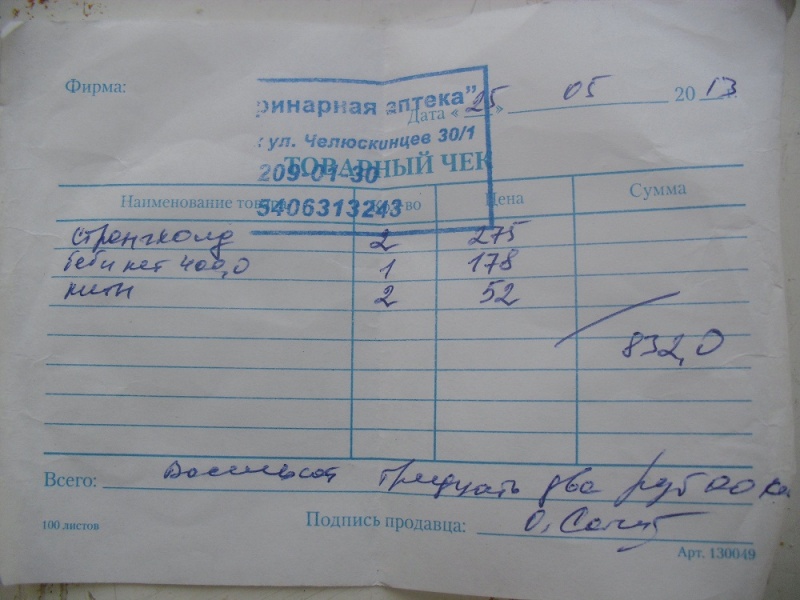 Фирма:
ринарная аптека"
Дата « 25 » 05 20 13 г.
ул. Челюскинцев 30/1
ТОВАРНЫЙ ЧЕК
209-01-30
Наименование товара Кол-во Цена Сумма
5406313243
Стронгхолд 2 275
беби кет 400,0 1 178
китн 2 52
832,0
Всего: Восемьсот тридцать два руб 00 к.
100 листов
Подпись продавца:
Арт. 130049